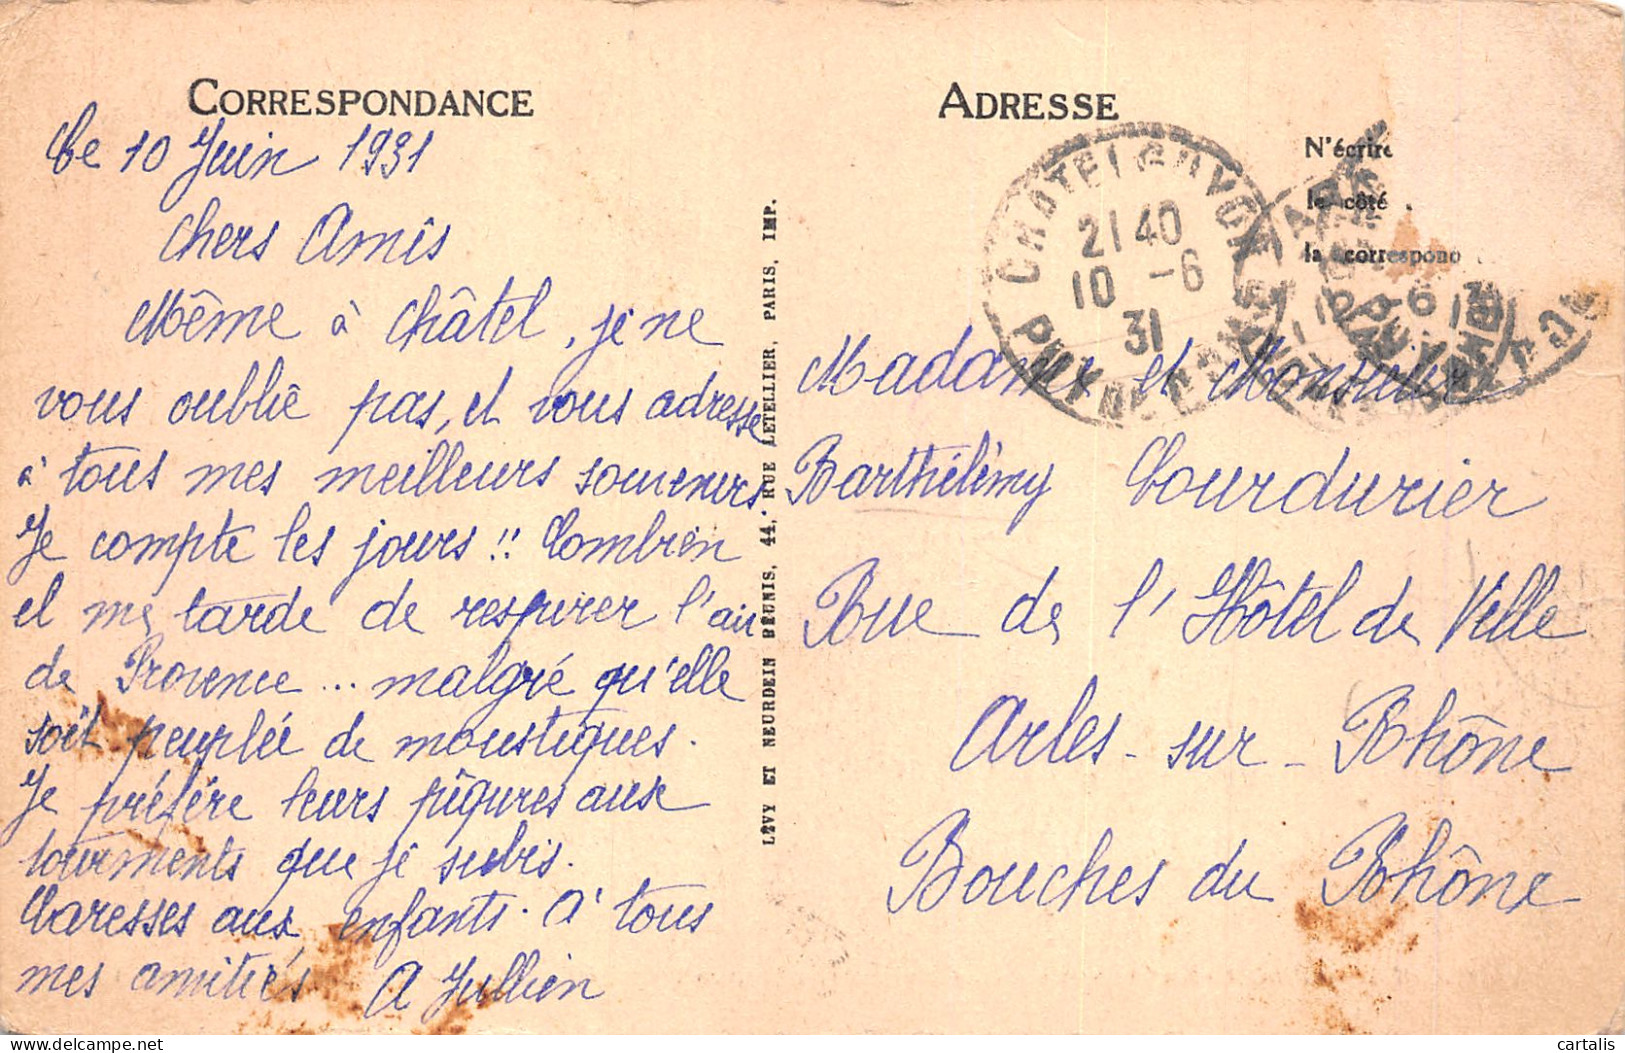 CORRESPONDANCE
Ce 10 Juin 1931
Chers Amis
Même à Châtel, je ne
vous oublie pas, et vous adresse
à tous mes meilleurs souvenirs.
Je compte les jours !! Combien
il me tarde de respirer l'air
de Provence... malgré qu'elle
soit peuplée de moustiques.
Je préfère leurs piqures aux
tourments que je subis.
Caresses aux enfants. A tous
mes amitiés A Jullien
LÉVY ET NEURDEIN RÉUNIS, 44, RUE LETELLIER, PARIS, IMP.
ADRESSE
N'écrire
le côté
la correspon
CHATELGUYON
21 40
10 -6
31
PUY DE DOME
Madame et Monsieur
Barthélémy Courdurier
Rue de l'Hôtel de Ville
Arles-sur-Rhône
Bouches du Rhône
cartalis